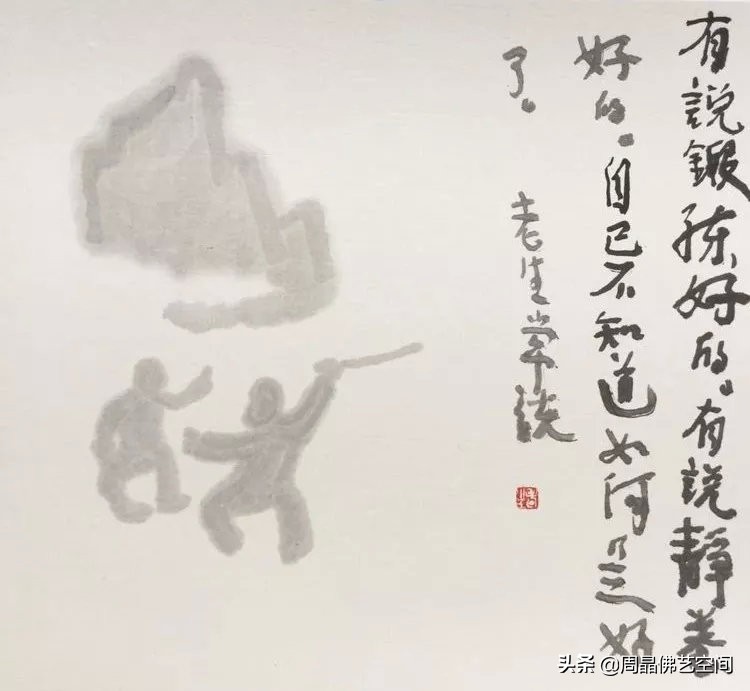 有説鍛練好的。有説靜養
好的。自己不知道如何是好
了。 老生常談
头条 @周晶佛艺空间